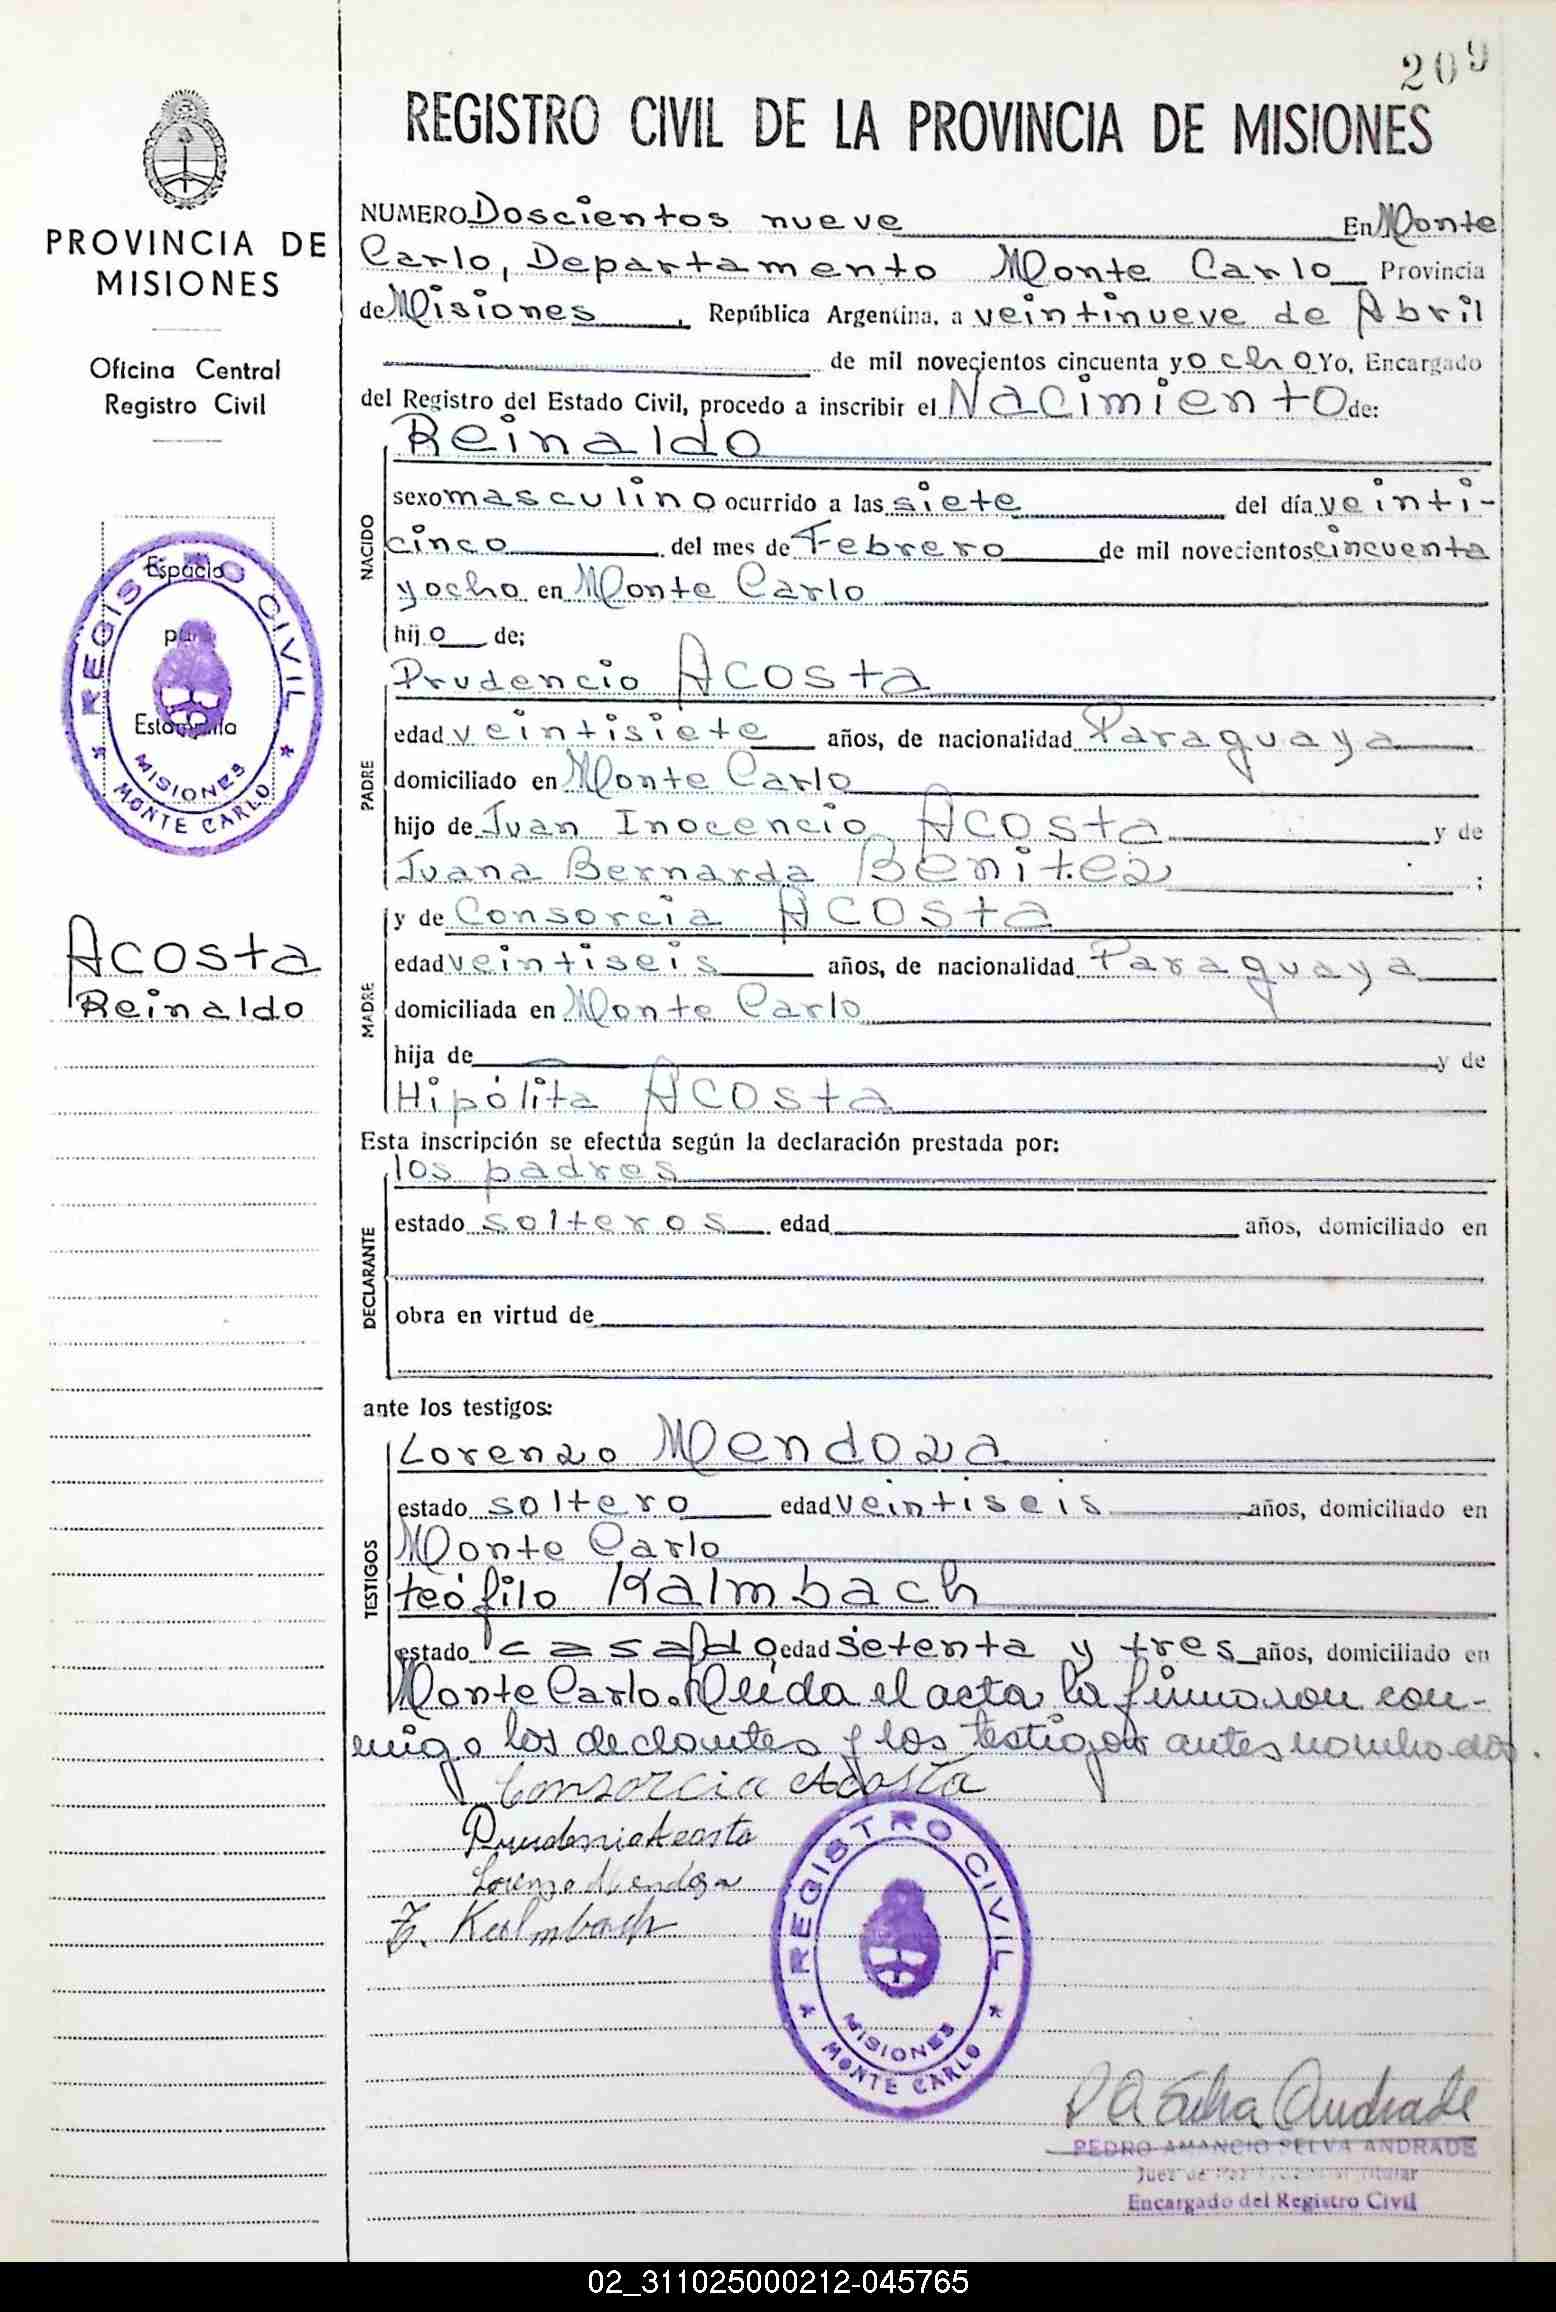 209
REGISTRO CIVIL DE LA PROVINCIA DE MISIONES
PROVINCIA DE
MISIONES
Oficina Central
Registro Civil
Espacio
para
Estampilla
REGISTRO CIVIL
MISIONES
MONTE CARLO
Acosta
Reinaldo
NUMERO Doscientos nueve En Monte
Carlo, Departamento Monte Carlo Provincia
de Misiones, República Argentina, a veintinueve de Abril
de mil novecientos cincuenta y ocho Yo, Encargado
del Registro del Estado Civil, procedo a inscribir el Nacimiento de:
NACIDO
Reinaldo
sexo masculino ocurrido a las siete del día veinti-
cinco del mes de Febrero de mil novecientos cincuenta
y ocho en Monte Carlo
hijo de;
PADRE
Prudencio Acosta
edad veintisiete años, de nacionalidad Paraguaya
domiciliado en Monte Carlo
hijo de Juan Inocencio Acosta y de
Juana Bernarda Benitez ;
MADRE
y de Consorcia Acosta
edad veintiseis años, de nacionalidad Paraguaya
domiciliada en Monte Carlo
hija de y de
Hipólita Acosta
Esta inscripción se efectúa según la declaración prestada por:
DECLARANTE
los padres
estado solteros edad años, domiciliado en
obra en virtud de
ante los testigos:
TESTIGOS
Lorenzo Mendoza
estado soltero edad veintiseis años, domiciliado en
Monte Carlo
teófilo Kalmbach
estado casado, edad setenta y tres años, domiciliado en
Monte Carlo. Leída el acta la firmaron con-
migo los declarantes y los testigos antes nombrados.
Consorcia Acosta
Prudencio Acosta
Lorenzo Mendoza
T. Kalmbach
REGISTRO CIVIL
MISIONES
MONTE CARLO
P A Selva Andrade
PEDRO AMANCIO SELVA ANDRADE
Juez de Paz Titular
Encargado del Registro Civil
02_311025000212-045765